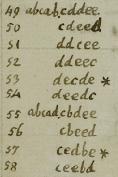 49 abcab,cddee
50 cdeed
51 ddcee
52 ddeec
53 decde *
54 deedc
55 abcaed,cbdee
56 cbeed
57 cedbe *
58 ceebd